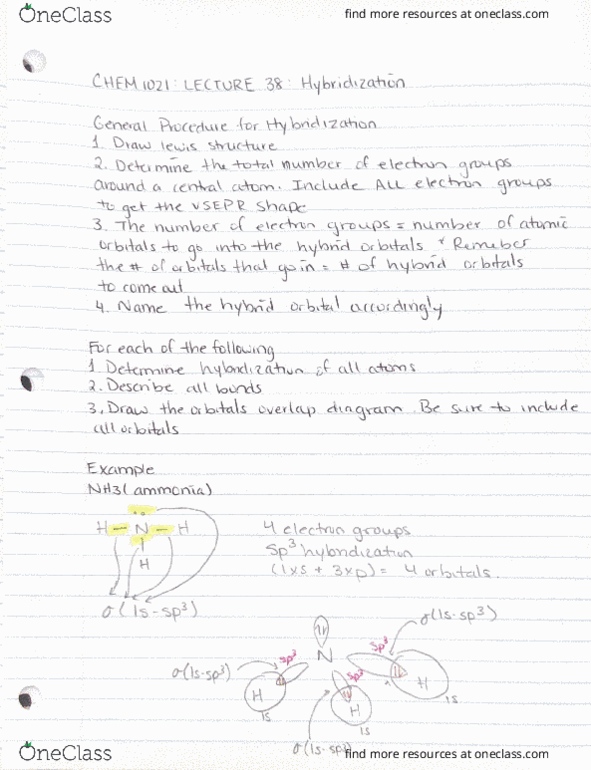 OneClass
find more resources at oneclass.com
CHEM 1021: LECTURE 38: Hybridization
General Procedure for Hybridization
1. Draw lewis structure
2. Determine the total number of electron groups
around a central atom. Include ALL electron groups
to get the VSEPR shape
3. The number of electron groups = number of atomic
orbitals to go into the hybrid orbitals * Remeber
the # of orbitals that go in = # of hybrid orbitals
to come out
4. Name the hybrid orbital accordingly
For each of the following
1. Determine hybridization of all atoms
2. Describe all bonds
3. Draw the orbitals overlap diagram. Be sure to include
all orbitals
Example
NH3 (ammonia)
H - N - H
H
4 electron groups
sp³ hybridization
(1xs + 3xp) = 4 orbitals.
σ(1s-sp³)
σ(1s-sp³)
N
sp³
sp³
sp³
σ(1s-sp³)
H
H
H
1s
1s
1s
σ(1s-sp³)
OneClass
find more resources at oneclass.com